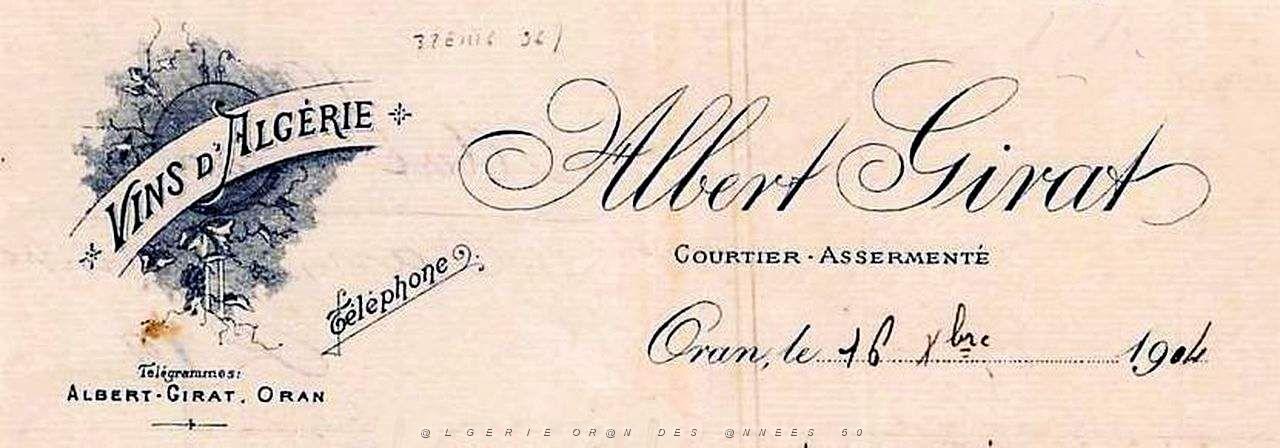 VINS D'ALGÉRIE
Albert Girat
COURTIER-ASSERMENTÉ
Téléphone
Oran, le 16 Xbre 1904
Télégrammes:
ALBERT-GIRAT, ORAN
@LGERIE OR@N DES @NNEES 50